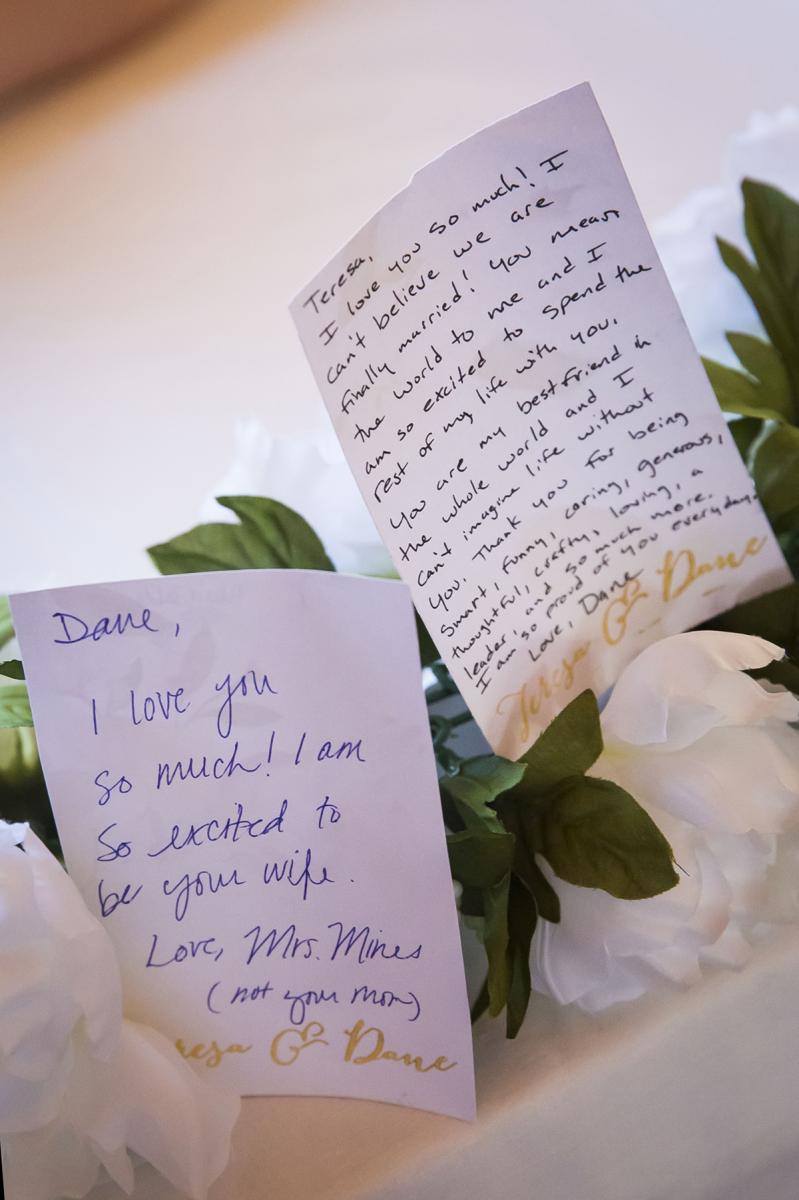 Teresa,
I love you so much! I
can't believe we are
finally married! You mean
the world to me and I
am so excited to spend the
rest of my life with you.
You are my bestfriend in
the whole world and I
can't imagine life without
you. Thank you for being
smart, funny, caring, generous,
thoughtful, crafty, loving, a
leader and so much more.
I am so proud of you everyday.
Love, Dane
Teresa & Dane
Dane,
I love you
so much! I am
so excited to
be your wife.
Love, Mrs. Mines
(not your mom)
resa & Dane